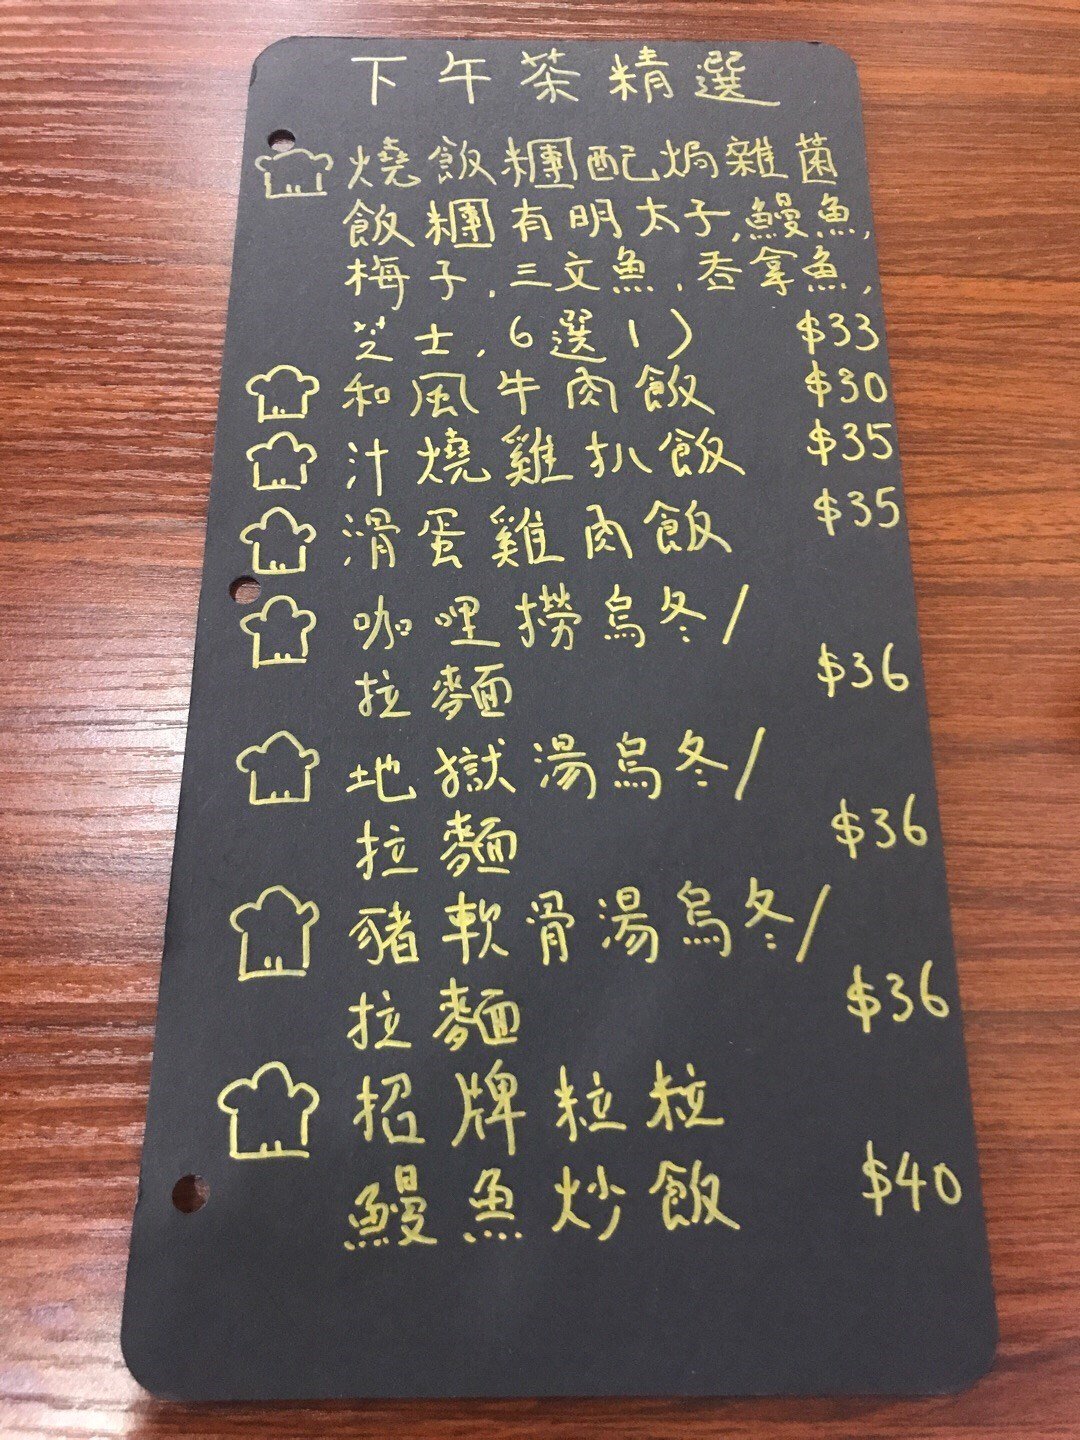 下午茶精選
燒飯糰配焗雜菌
飯糰有明太子,鰻魚,
梅子,三文魚,吞拿魚,
芝士,6選1) $33
和風牛肉飯 $30
汁燒雞扒飯 $35
滑蛋雞肉飯 $35
咖哩撈烏冬/
拉麵 $36
地獄湯烏冬/
拉麵 $36
豬軟骨湯烏冬/
拉麵 $36
招牌粒粒
鰻魚炒飯 $40